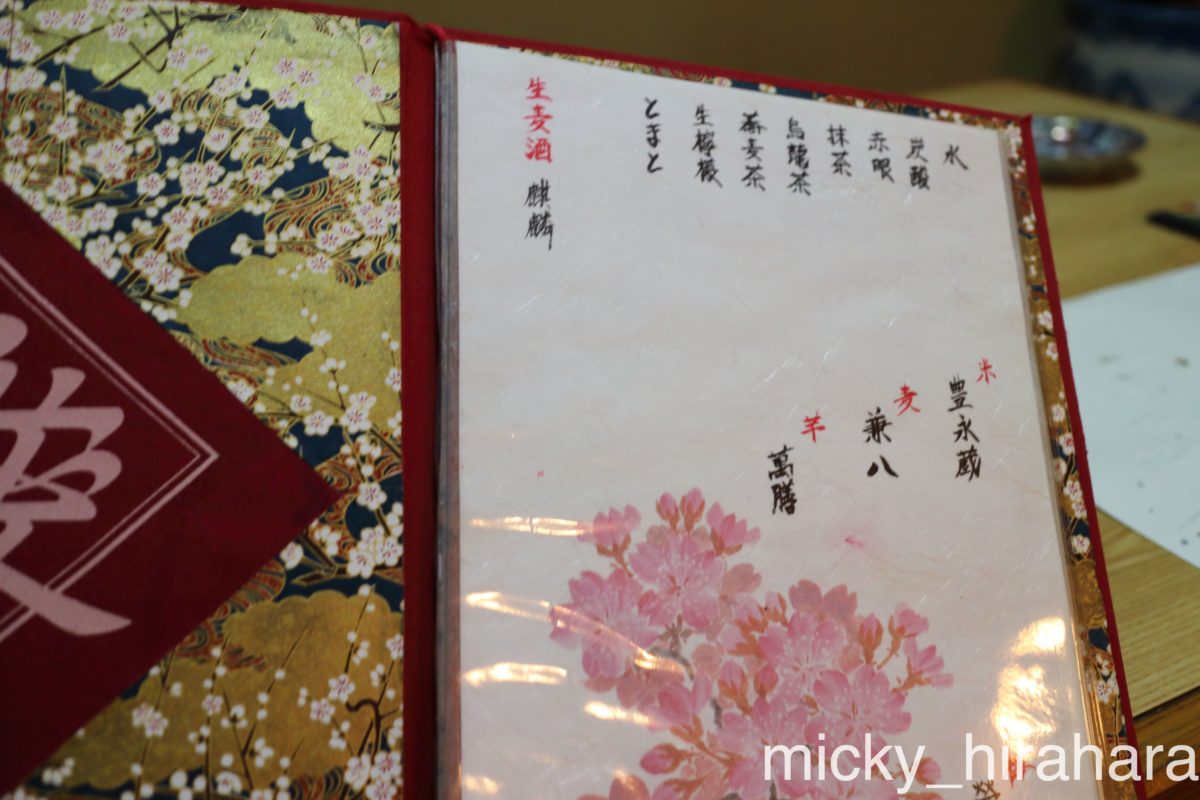 水
炭酸
赤眼
抹茶
烏龍茶
蕎麦茶
生檸檬
とまと
生麦酒 麒麟
米
豊永蔵
麦
兼八
芋
萬膳
micky_hirahara